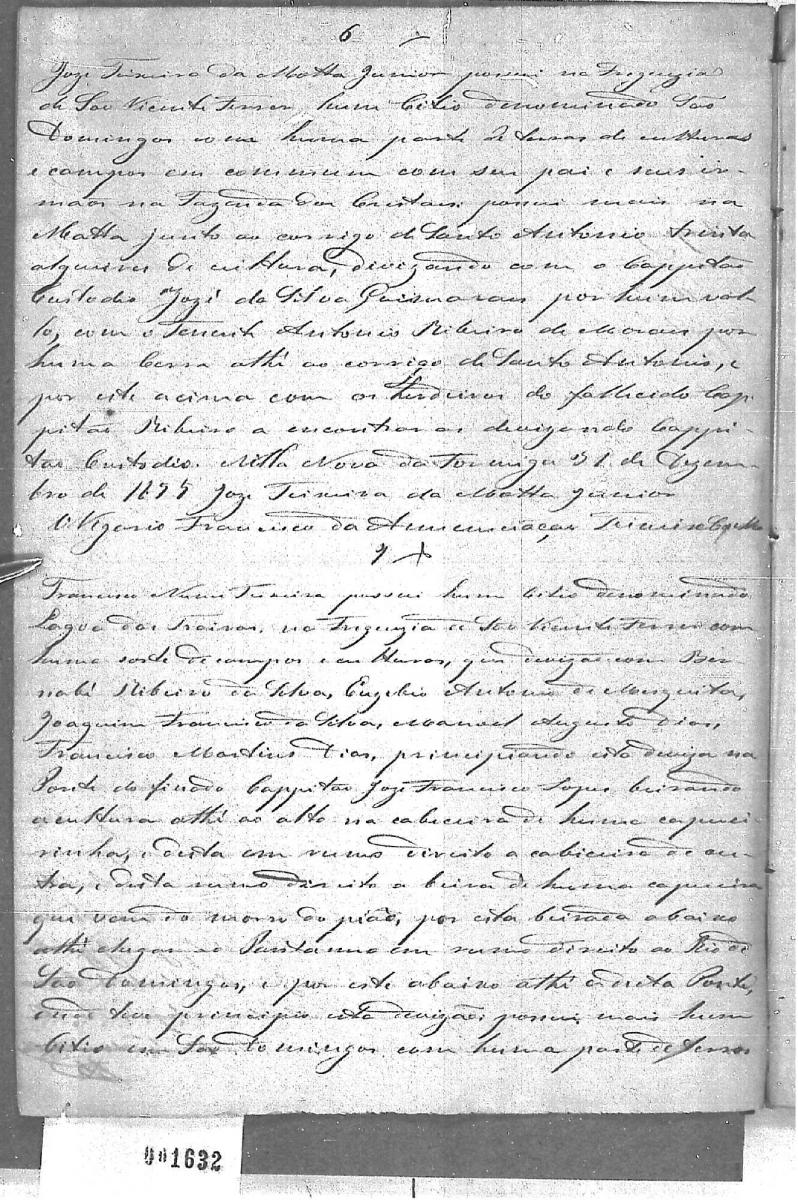 6
Joze Teixeira da Motta Junior possui na Freguezia
de Sao Vicente Ferrer, hum Citio denominado São
Domingos com huma parte de terras de culturas
e campos em commum com seu pai e seus ir-
maos na Fazenda dos Cristais: possui mais na
Matta junto ao corrigo de Santo Antonio trinta
alqueires de cultura, divizando com o Cappitão
Custodio Jozé da Silva Guimaraes por hum val-
lo, com o Tenente Antonio Ribeiro de Moraes por
huma Cerra athé ao corrigo de Santo Antonio, e
por este acima com os Herdeiros do fallecido Cap-
pitão Ribeiro a encontrar as devizas do Cappi-
tão Custodio. Villa Nova da Formiga 31 de Dezem-
bro de 1855 Joze Teixeira da Motta Junior
O Vigario Francisco da Annunciaçao Teixeira Coelho
7
Francisco Nunes Teixeira possui hum Citio denominado
Lagoa das Trairas, na Freguezia de Sao Vicente Ferrer com
huma sorte de campos e culturas, que devizão com Ber-
nabé Ribeiro da Silva, Eugebio Antonio de Mesquita,
Joaquim Francisco da Silva, Manoel Augusto Dias,
Francisco Martins Dias, principiando esta deviza na
Ponte do finado Cappitão Joze Francisco Lopes beirando
a cultura athé ao alto na cabeceira de huma capuei-
rinha, e desta em rumo direito a cabeceira de ou-
tra, e desta rumo direito a beira de huma capueira
que vem do morro do pião, por esta beirada abaixo
athé chegar ao Pantanno em rumo direito ao Rio de
Sao Domingos, e por este abaixo athé a dita Ponte,
onde teve principio esta devizão: possui mais hum
Citio em Sao Domingos com huma parte de terras
001632